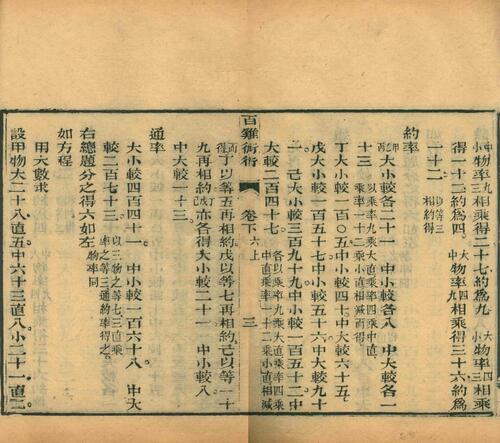 小物率三相乘得二十七約爲九 大物率四相乘得三十六約爲
得一十二約爲四 中物率九相乘得三十六約爲
一十二 以等三相約得
約率
甲丙大小較各二十一 中小較各八 中大較各一
十三 以乘率九乘大直乘率四乘中直乘率一十二乘小直相減而得
丁大小較一百〇五中小較四十七中大較六十五
戊大小較一百五十二中小較五十六中大較九十
一 己大小較三百九十九中小較一百五十二中
大較二百四十七 各以乘率九乘大直乘率四乘中直乘率一十二乘小直相減
而得丁以等五再相約戊以等七再相約己以等一十
九再相約亦各得大小較二十一 中小較八
中大較一十三
通率
大小較四百四十一 中小較一百六十八 中大
較二百七十三 以三物之等七三直乘之等三通約率得之
右總題分之得六如左 物率同
如方程
用大數求
設甲物大二十八直五中六十三直八小二十一直二
百雞術衍 卷下之上 三